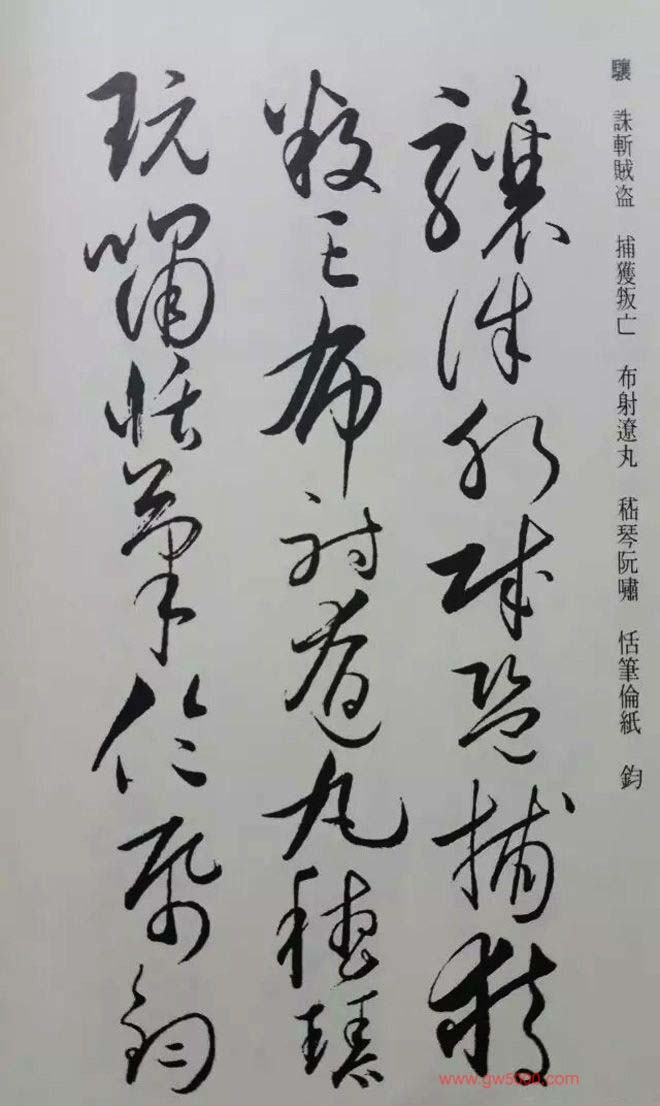 驤 誅斬賊盗 捕獲叛亡 布射遼丸 嵇琴阮嘯 恬筆倫紙 鈞
驤誅斬賊盗捕獲
叛亡布射遼丸嵇琴
阮嘯恬筆倫紙鈞
www.gw5000.com